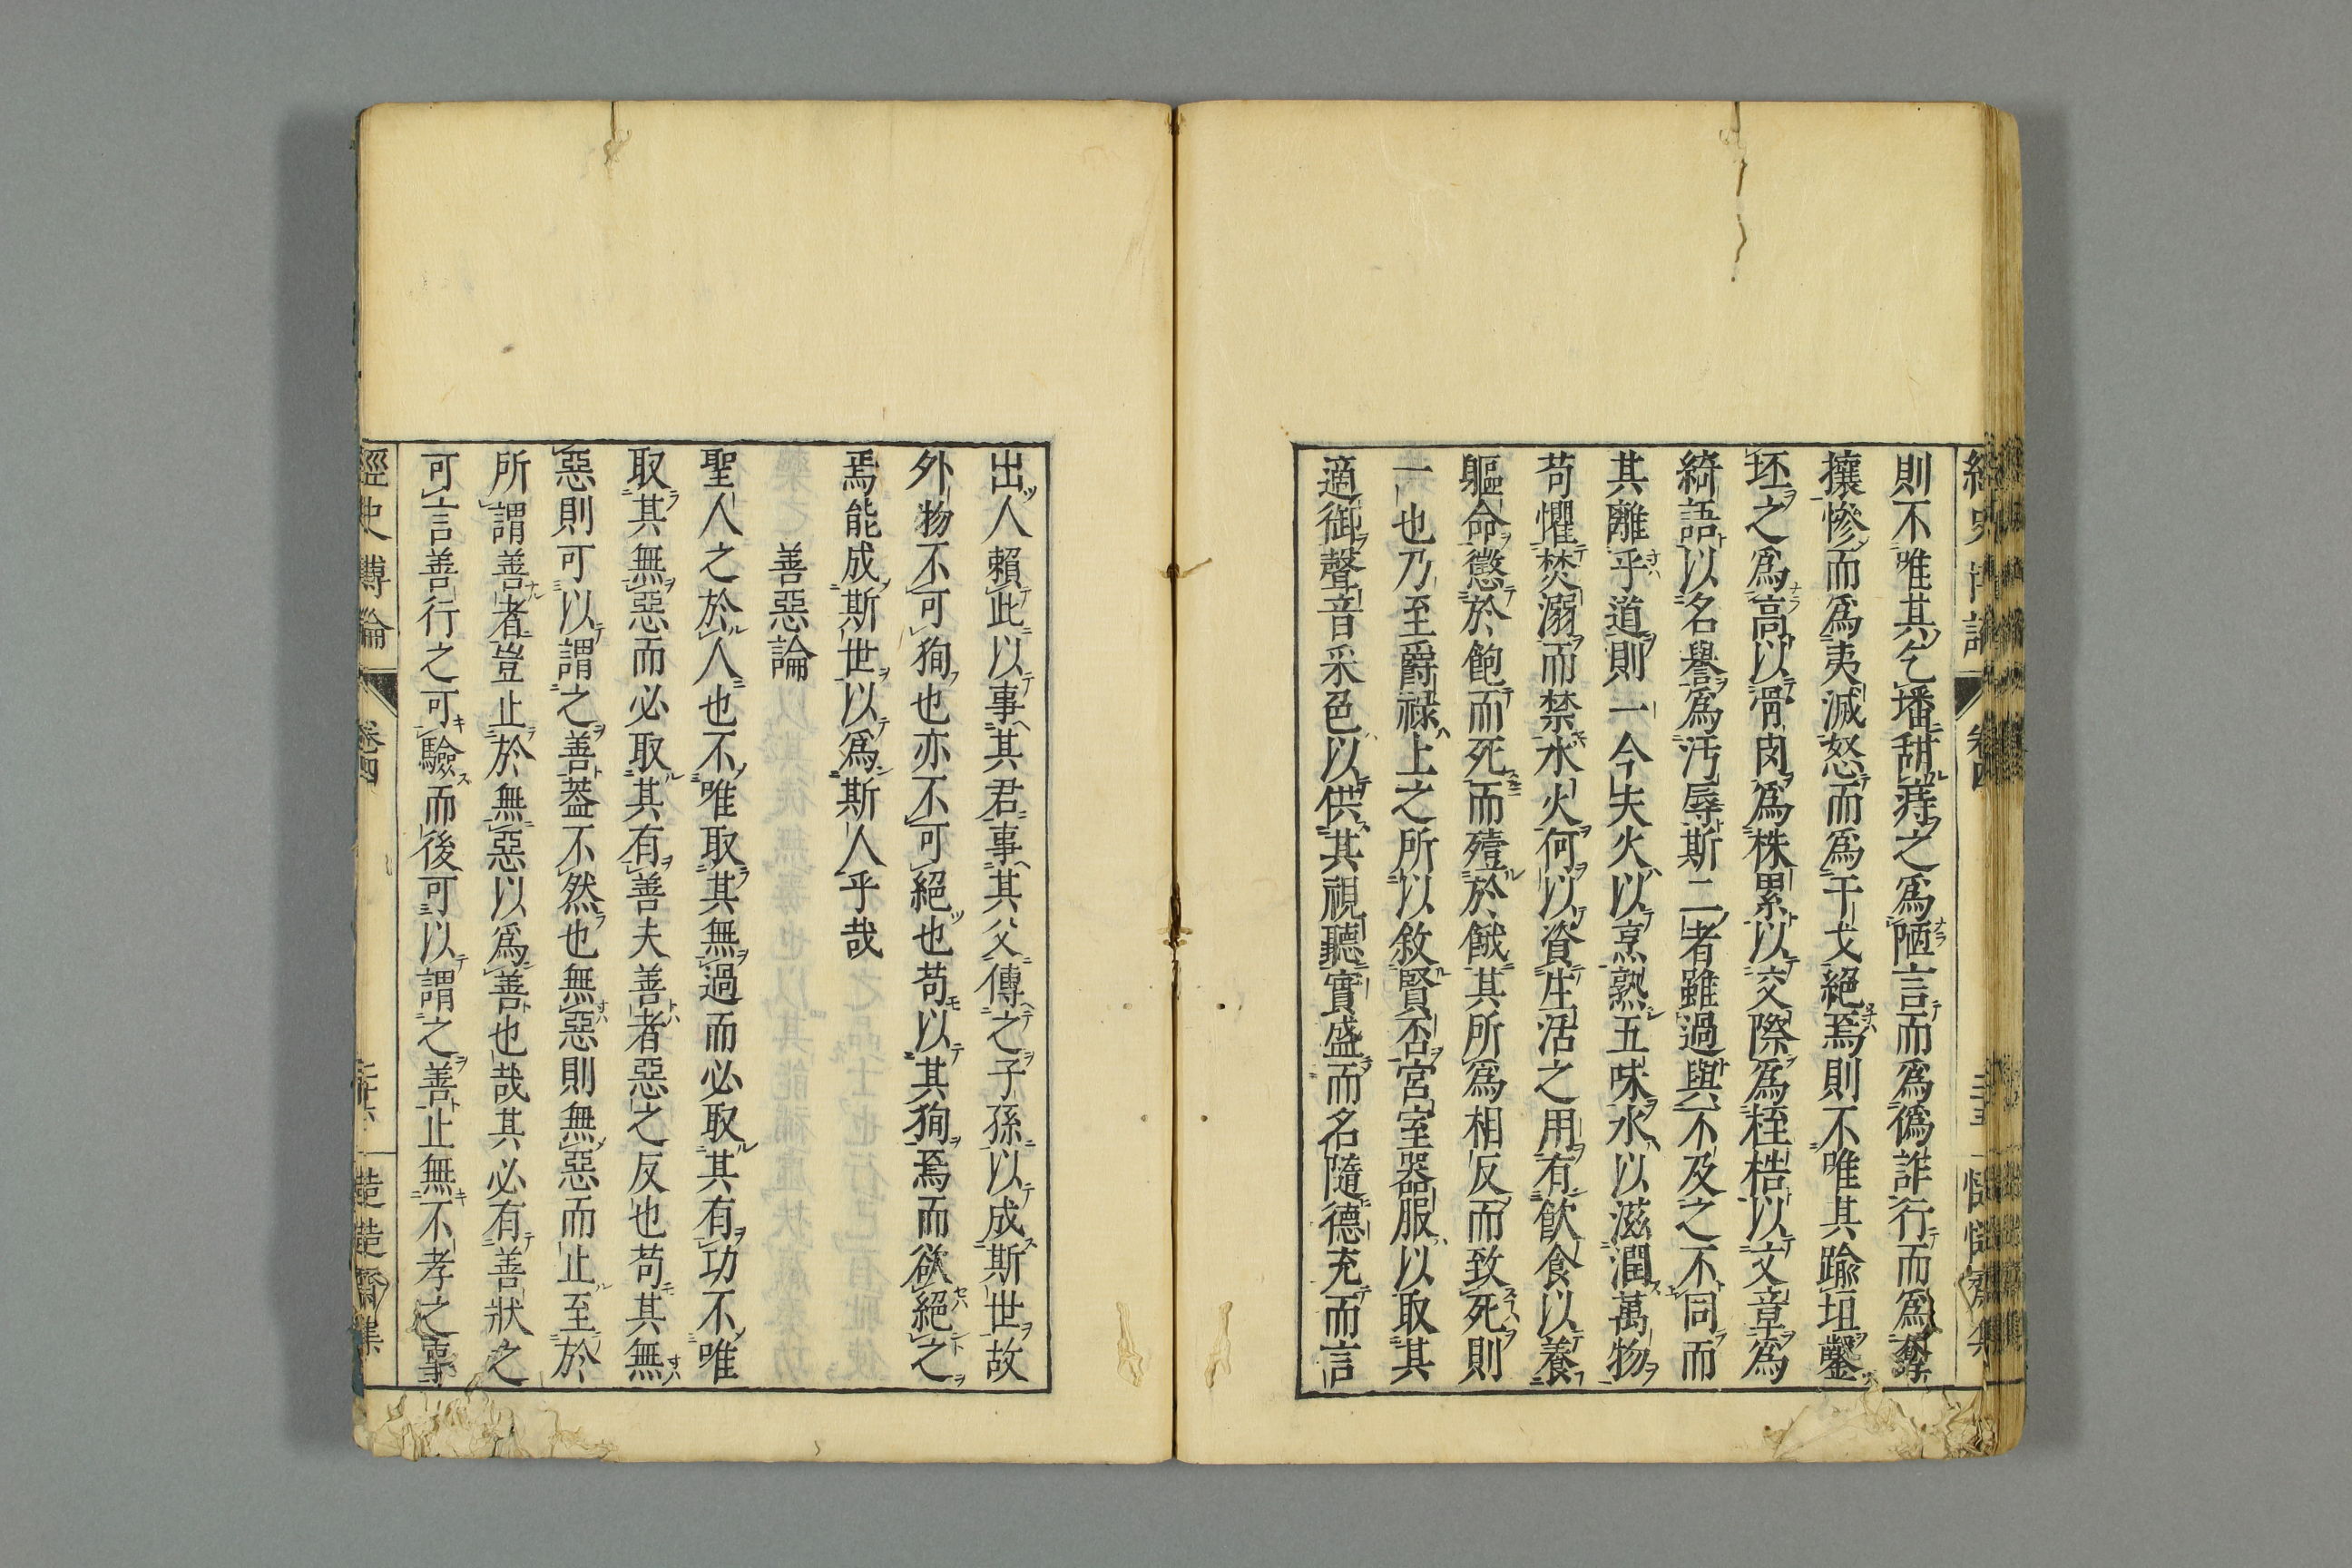 則不唯其乞墦甜痔之爲陋言而爲僞詐行而爲
攘慘而爲夷滅怒而爲干戈絕焉則不唯其踰垣鑿
坯之爲高以骨肉爲株累以交際爲桎梏以文章爲
綺語以名譽爲汚辱斯二者雖過與不及之不同而
其離乎道則一今夫火以烹熟五味水以滋潤萬物
苟懼焚溺而禁水火何以資生活之用有飮食以養
軀命懲於飽而死而殪於餓其所爲相反而致死則
一也乃至爵祿上之所以敘賢否宮室器服以取其
適御聲音采色以供其視聽實盛而名隨德充而言
出人賴此以事其君事其父傳之子孫以成斯世故
外物不可狥也亦不可絕也苟以其狥焉而欲絕之
焉能成斯世以爲斯人乎哉
善惡論
聖人之於人也不唯取其無過而必取其有功不唯
取其無惡而必取其有善夫善者惡之反也苟其無
惡則可以謂之善葢不然也無惡則無惡而止至於
所謂善者豈止於無惡以爲善也哉其必有善狀之
可言善行之可驗而後可以謂之善止無不孝之事
經史博論 卷四